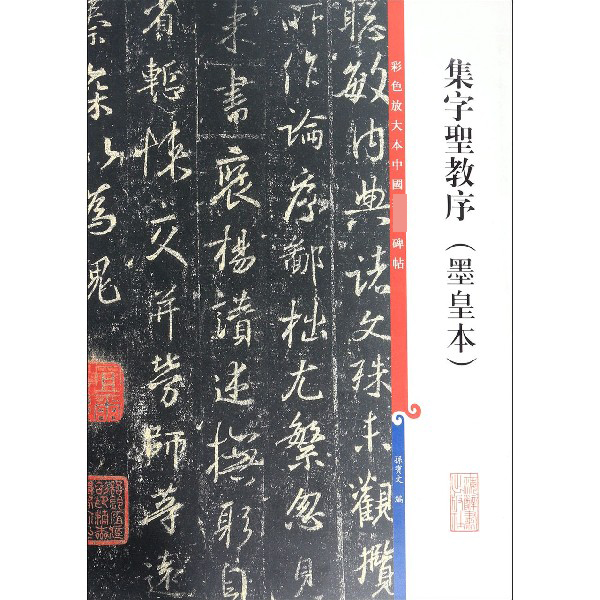 集字聖教序（墨皇本）
彩色放大本中國
碑帖
孫寶文 編
聰敏内典諸文殊未觀攬
昨作論序鄙拙尤繁忽見
来書褒揚讃述撫躬自
省輙悚交并勞師等遠
臻深以爲愧